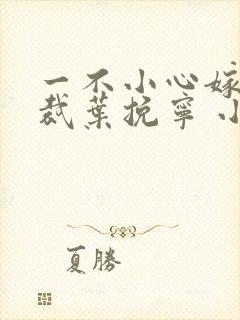 一不小心嫁
裁葉挽寧 小
夏勝